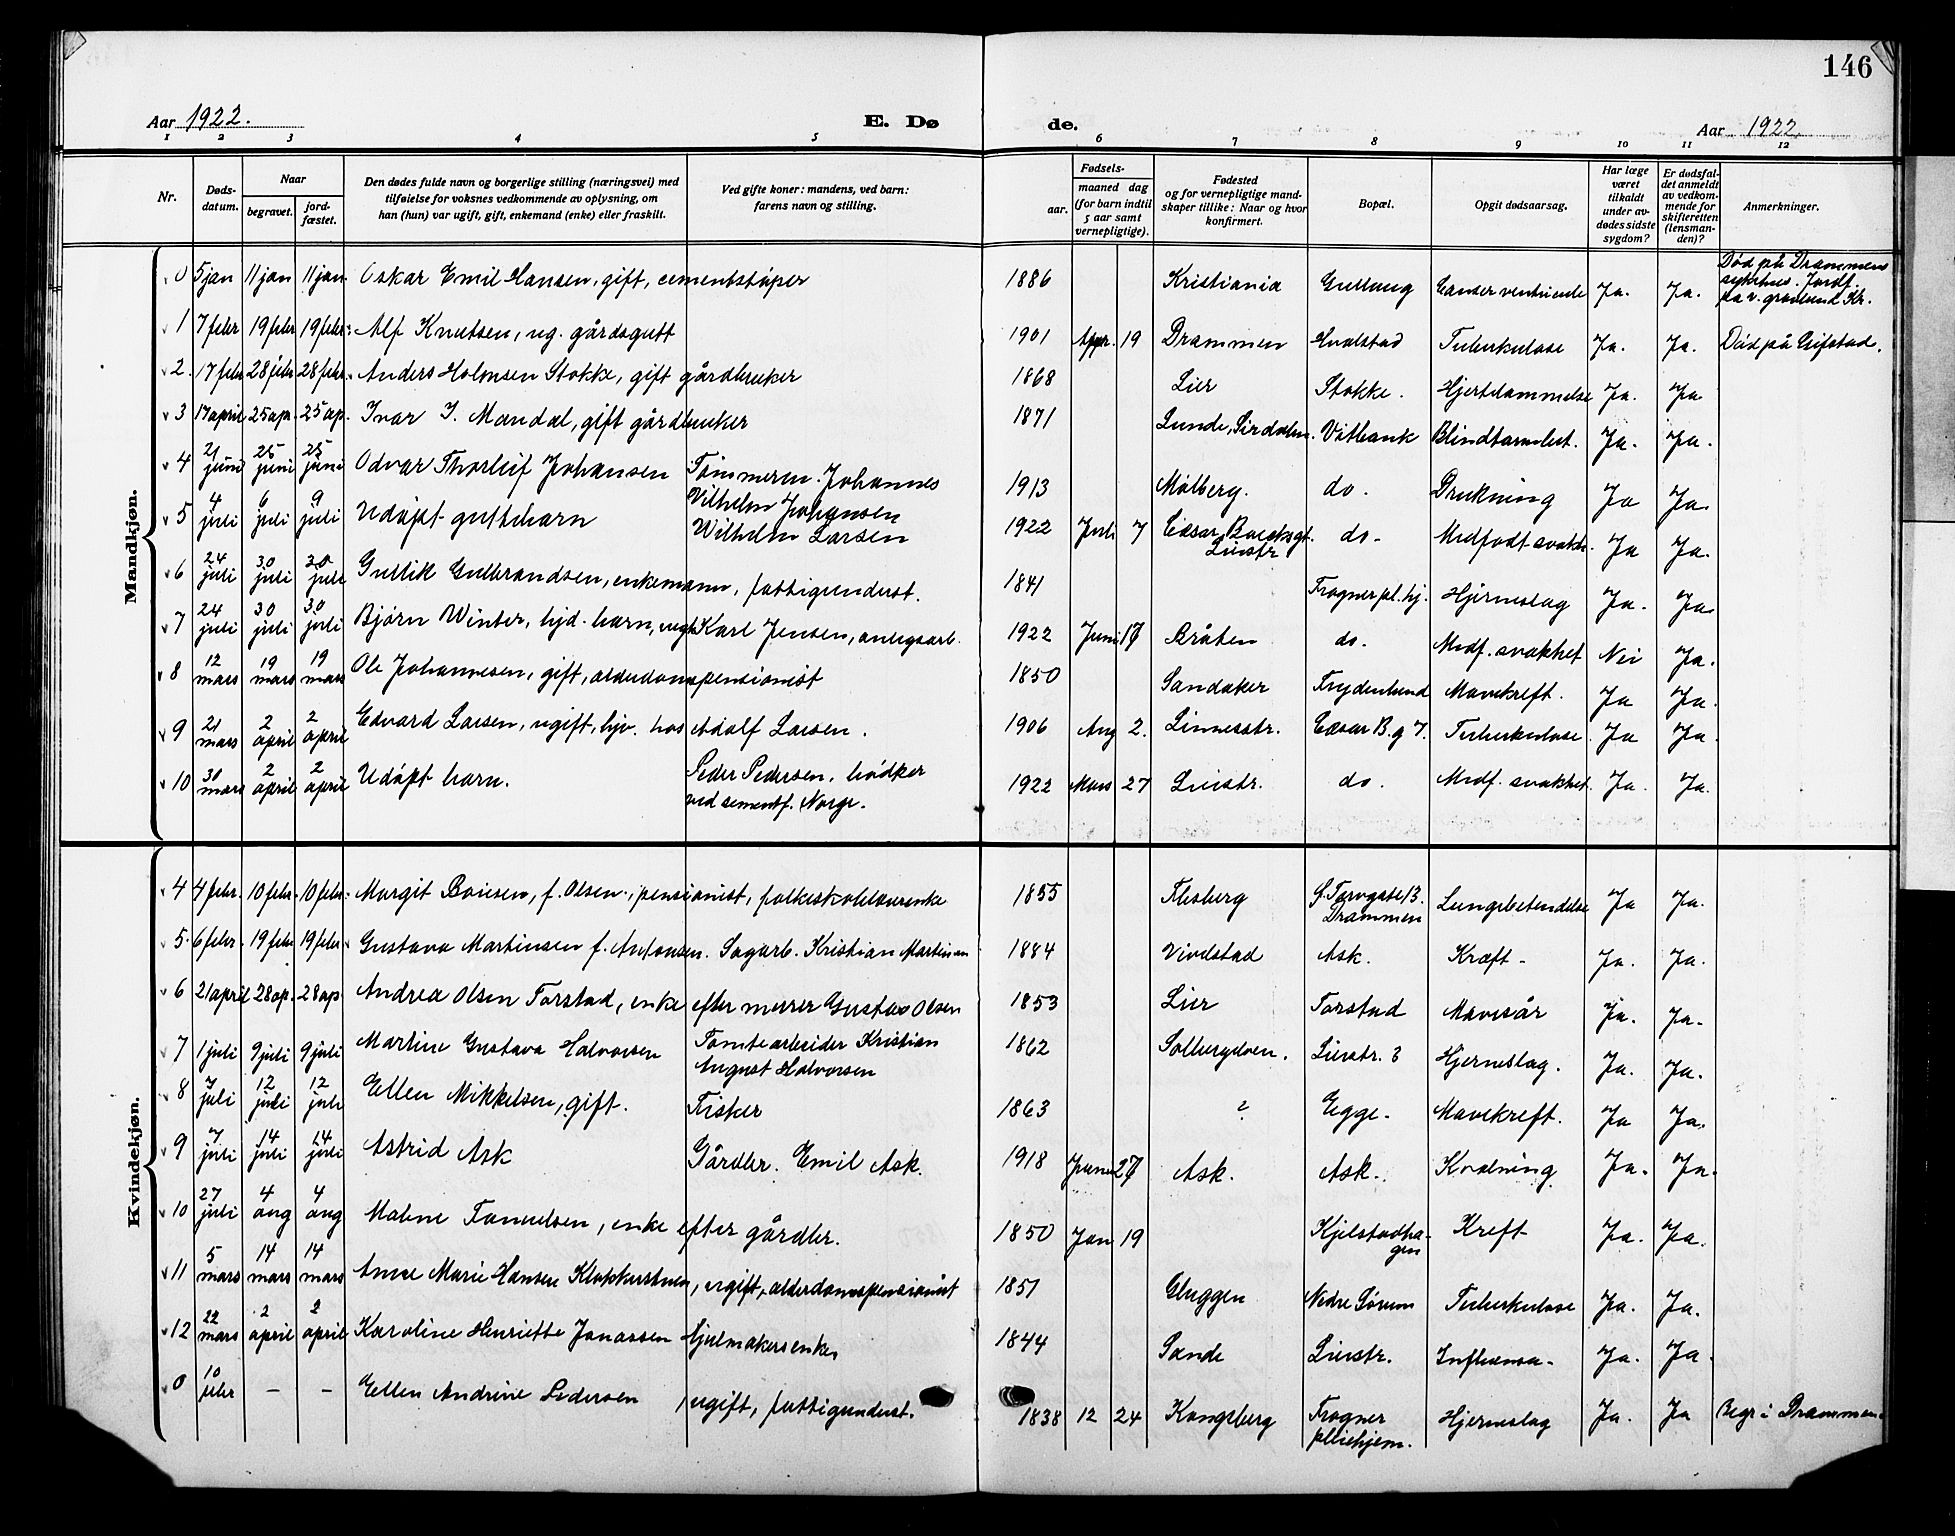 146
Aar 1922.
E. Dø
de.
Aar 1922.
1 2 3 4 5 6 7 8 9 10 11 12
Nr.
Døds-
datum.
Naar
begravet.
jord-
fæstet.
Den dødes fulde navn og borgerlige stilling (næringsvei) med
tilføielse for voksnes vedkommende av oplysning, om
han (hun) var ugift, gift, enkemand (enke) eller fraskilt.
Ved gifte koner: mandens, ved barn:
farens navn og stilling.
Fødsels-
aar.
maaned dag
(for barn indtil
5 aar samt
vernepligtige).
Fødested
og for vernepligtige mand-
skaper tillike: Naar og hvor
konfirmert.
Bopæl.
Opgit dødsaarsag.
Har læge
været
tilkaldt
under av-
dødes sidste
sygdom?
Er dødsfal-
det anmeldt
av vedkom-
mende for
skifteretten
(lensman-
den)?
Anmerkninger.
Mandkjøn.
0 5 jan 11 jan 11 jan. Oskar Emil Hansen, gift, cementstøper 1886 Kristiania Gullaug Cancer ventriculi Ja. Ja. Død på Drammens
sykehus. Jordf.
1 7 febr 19 febr 19 febr. Alf Knutsen, ug. gårdsgutt 1901 Apr. 19 Drammen Hvalstad Tuberkulose Ja. Ja. Død på
2. 17 febr 28 febr 28 febr. Anders Holmsen Stokke, gift gårdbruker 1868 Lier Stokke. Hjertelammelse Ja. Ja
3 17 april 25 ap. 25 ap. Ivar I. Mandal, gift gårdbruker 1871 Lunde, Sirdalen. Vitbank Blindtarmbet. Ja. Ja.
4 21 juni 25 juni 25 juni Odvar Thorleif Johansen Tømmerm. Johannes
Vilhelm Johansen 1913 Mølberg. do. Drukning Ja Ja.
5 4 juli 6 juli 9 juli Udøpt guttebarn Wilhelm Larsen 1922 Juli 7
Lierstr do. Medfødt svakh. Ja Ja.
6 24 juli 30 juli 30 juli Gullik Gulbrandsen, enkemann, fattigunderst. 1841 Frogner pl. hj. Hjerneslag Ja. Ja.
7 24 juli 30 juli 30 juli Bjørn Winter, hjd. barn, uegte Karl Jensen, anlegsarb. 1922 Juni 17 Bråten do. Medf. svakhet Nei Ja.
8 12 mars 19 mars 19 mars Ole Johannesen, gift, alderdomspensionist 1850 Sandaker Frydenlund Mavekreft. Ja Ja.
9 21 mars 2 april 2 april Edvard Larsen, ugift, hjv. hos Adolf Larsen. 1906 Aug 2. Linnesstr. Cæsar B. g 7. Tuberkulose Ja Ja.
10 30 mars 2 april 2 april Udøpt barn. Peder Pedersen, bødker
ved sementf. Norge. 1922 Mars 27 Lierstr. do. Medf. svakhet. Ja. Ja.
Kvindekjøn.
4 4 febr. 10 febr. 10 febr. Margit Boiesen, f. Olsen, pensionist, folkeskolelærerenke 1855 Flesberg S. Torvgate 13.
Drammen Lungebetendelse Ja Ja.
5. 6 febr. 19 febr 19 febr. Gustava Martinsen f. Antonsen. Sagarb. Kristian Martinsen 1884 Vivelstad Ask. Kræft Ja. Ja.
6 21 april 28 ap. 28 ap. Andrea Olsen Torstad, enke efter murer Gustav Olsen 1853 Lier Torstad Mavesår Ja. Ja.
7 1 juli 9 juli 9 juli Martine Gustava Halvorsen Tomtearbeider Kristian
August Halvorsen 1862 Solbergelven. Lierstr. 3 Hjerneslag. Ja. Ja.
8 7 juli 12 juli 12 juli Ellen Mikkelsen, gift. Fisker 1863 ? Egge. Mavekreft. Ja Ja.
9 7 juli 14 juli 14 juli Astrid Ask Gårdbr. Emil Ask. 1918 Juni 27 Ask. Ask. Kvelning Ja. Ja.
10 27 juli 4 aug 4 aug Malene enke efter gårdbr. 1850 Jan 19 Kjelstadha-
gen Kreft Ja. Ja.
11 5 mars 14 mars 14 mars Anne Marie Hansen ugift, alderdomspensionist 1851 Gluggen Nedre Sørum Tuberkulose Ja. Ja.
12 22 mars 2 april 2 april Karoline Henriette Jonassen Hjulmakersenke 1844 Sande Lierstr. Influensa. Ja. Ja.
0 10 febr - - Ellen Andrine Pedersen, ugift, fattigunderst. 1838 12 24 Kongsberg Frogner
pleiehjem. Hjerneslag Ja. Ja Begr. i Drammen.